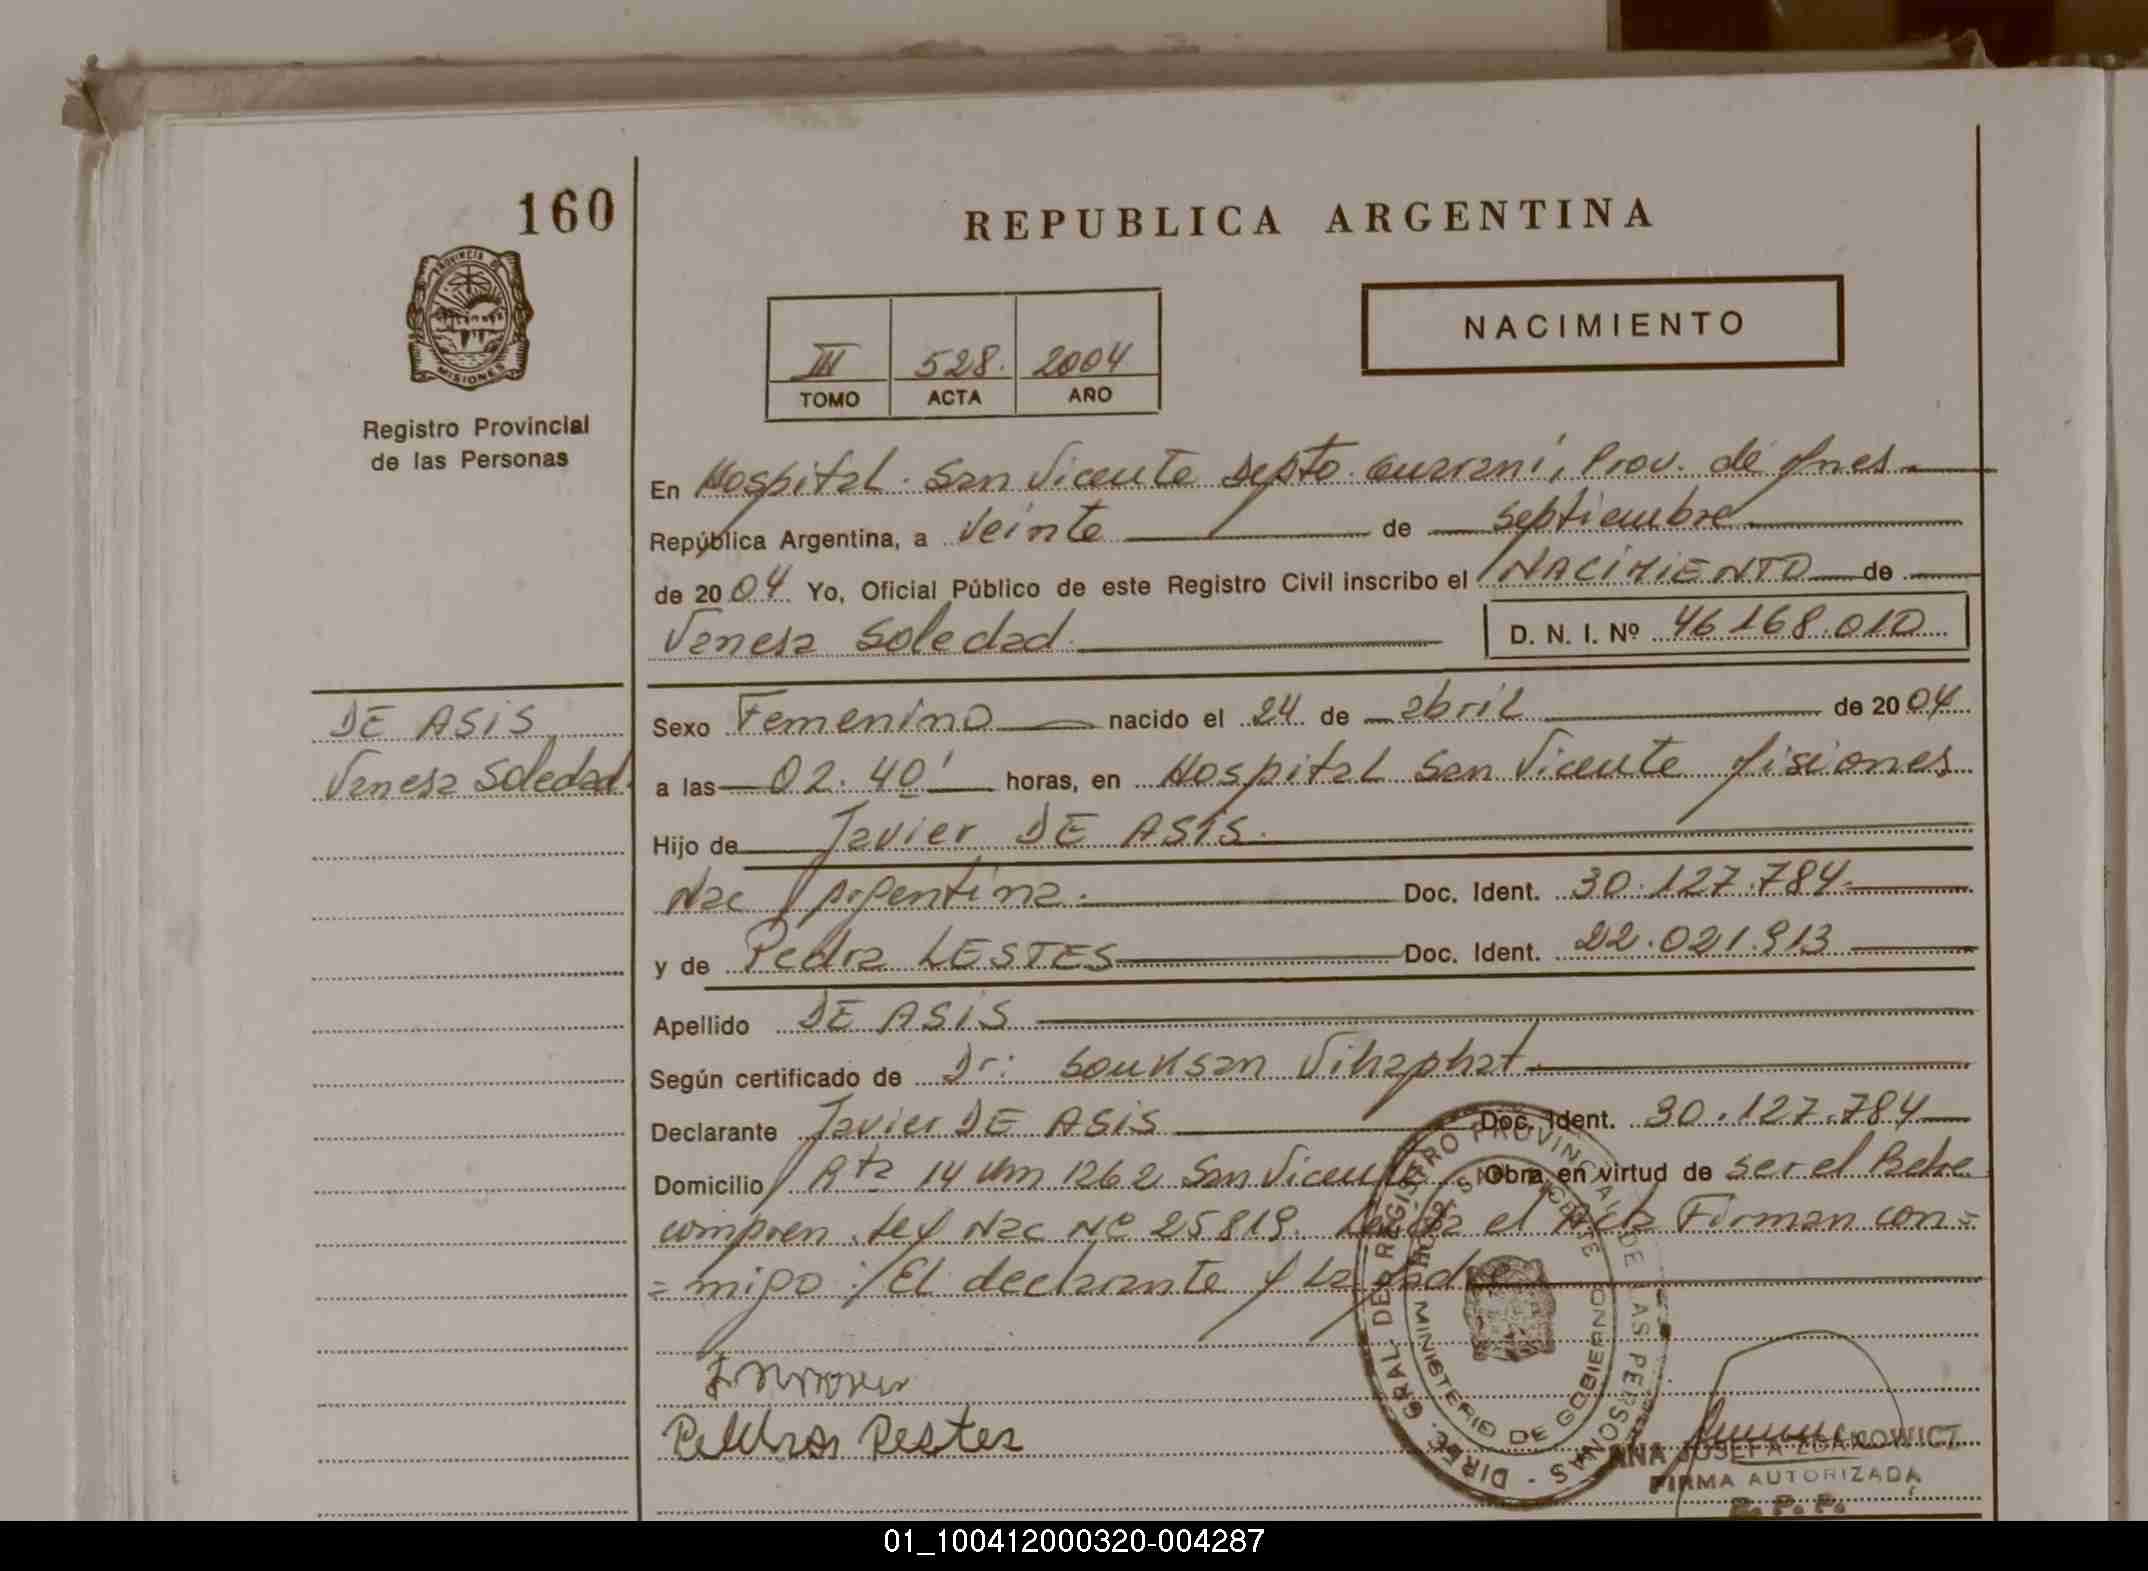 160
REPUBLICA ARGENTINA
PROVINCIA DE
MISIONES
NACIMIENTO
III 528. 2004
TOMO ACTA AÑO
Registro Provincial
de las Personas
En Hospital. San Vicente Depto. Guaraní, Prov. de Mnes.
República Argentina, a veinte de septiembre
de 2004 Yo, Oficial Público de este Registro Civil inscribo el NACIMIENTO de
Vanesa Soledad
D. N. I. Nº 46.168.010
DE ASIS
Vanesa Soledad.
Sexo Femenino nacido el 24 de abril de 2004
a las 02.40' horas, en Hospital San Vicente Misiones
Hijo de Javier DE ASIS.
Nac Argentina. Doc. Ident. 30.127.784
y de Pedra LESTES Doc. Ident. 22.021.913
Apellido DE ASIS
Según certificado de Dr: Souksan Vihaphat
Declarante Javier DE ASIS Doc. Ident. 30.127.784
Domicilio Rta 14 Km 1262 San Vicente Obra en virtud de ser el Padre
compren. Ley Nac Nº 25819. Leída el Acta Firman con=
=migo: El declarante y La Madre
DIREC. GRAL. DEL REGISTRO PROVINCIAL DE LAS PERSONAS
SAN VICENTE
MINISTERIO DE GOBIERNO
Pedra Lestes
ANA JOSEFA
FIRMA AUTORIZADA
R. P. P.
01_100412000320-004287